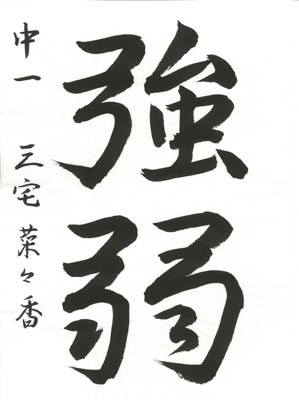 強弱
中一 三宅菜々香